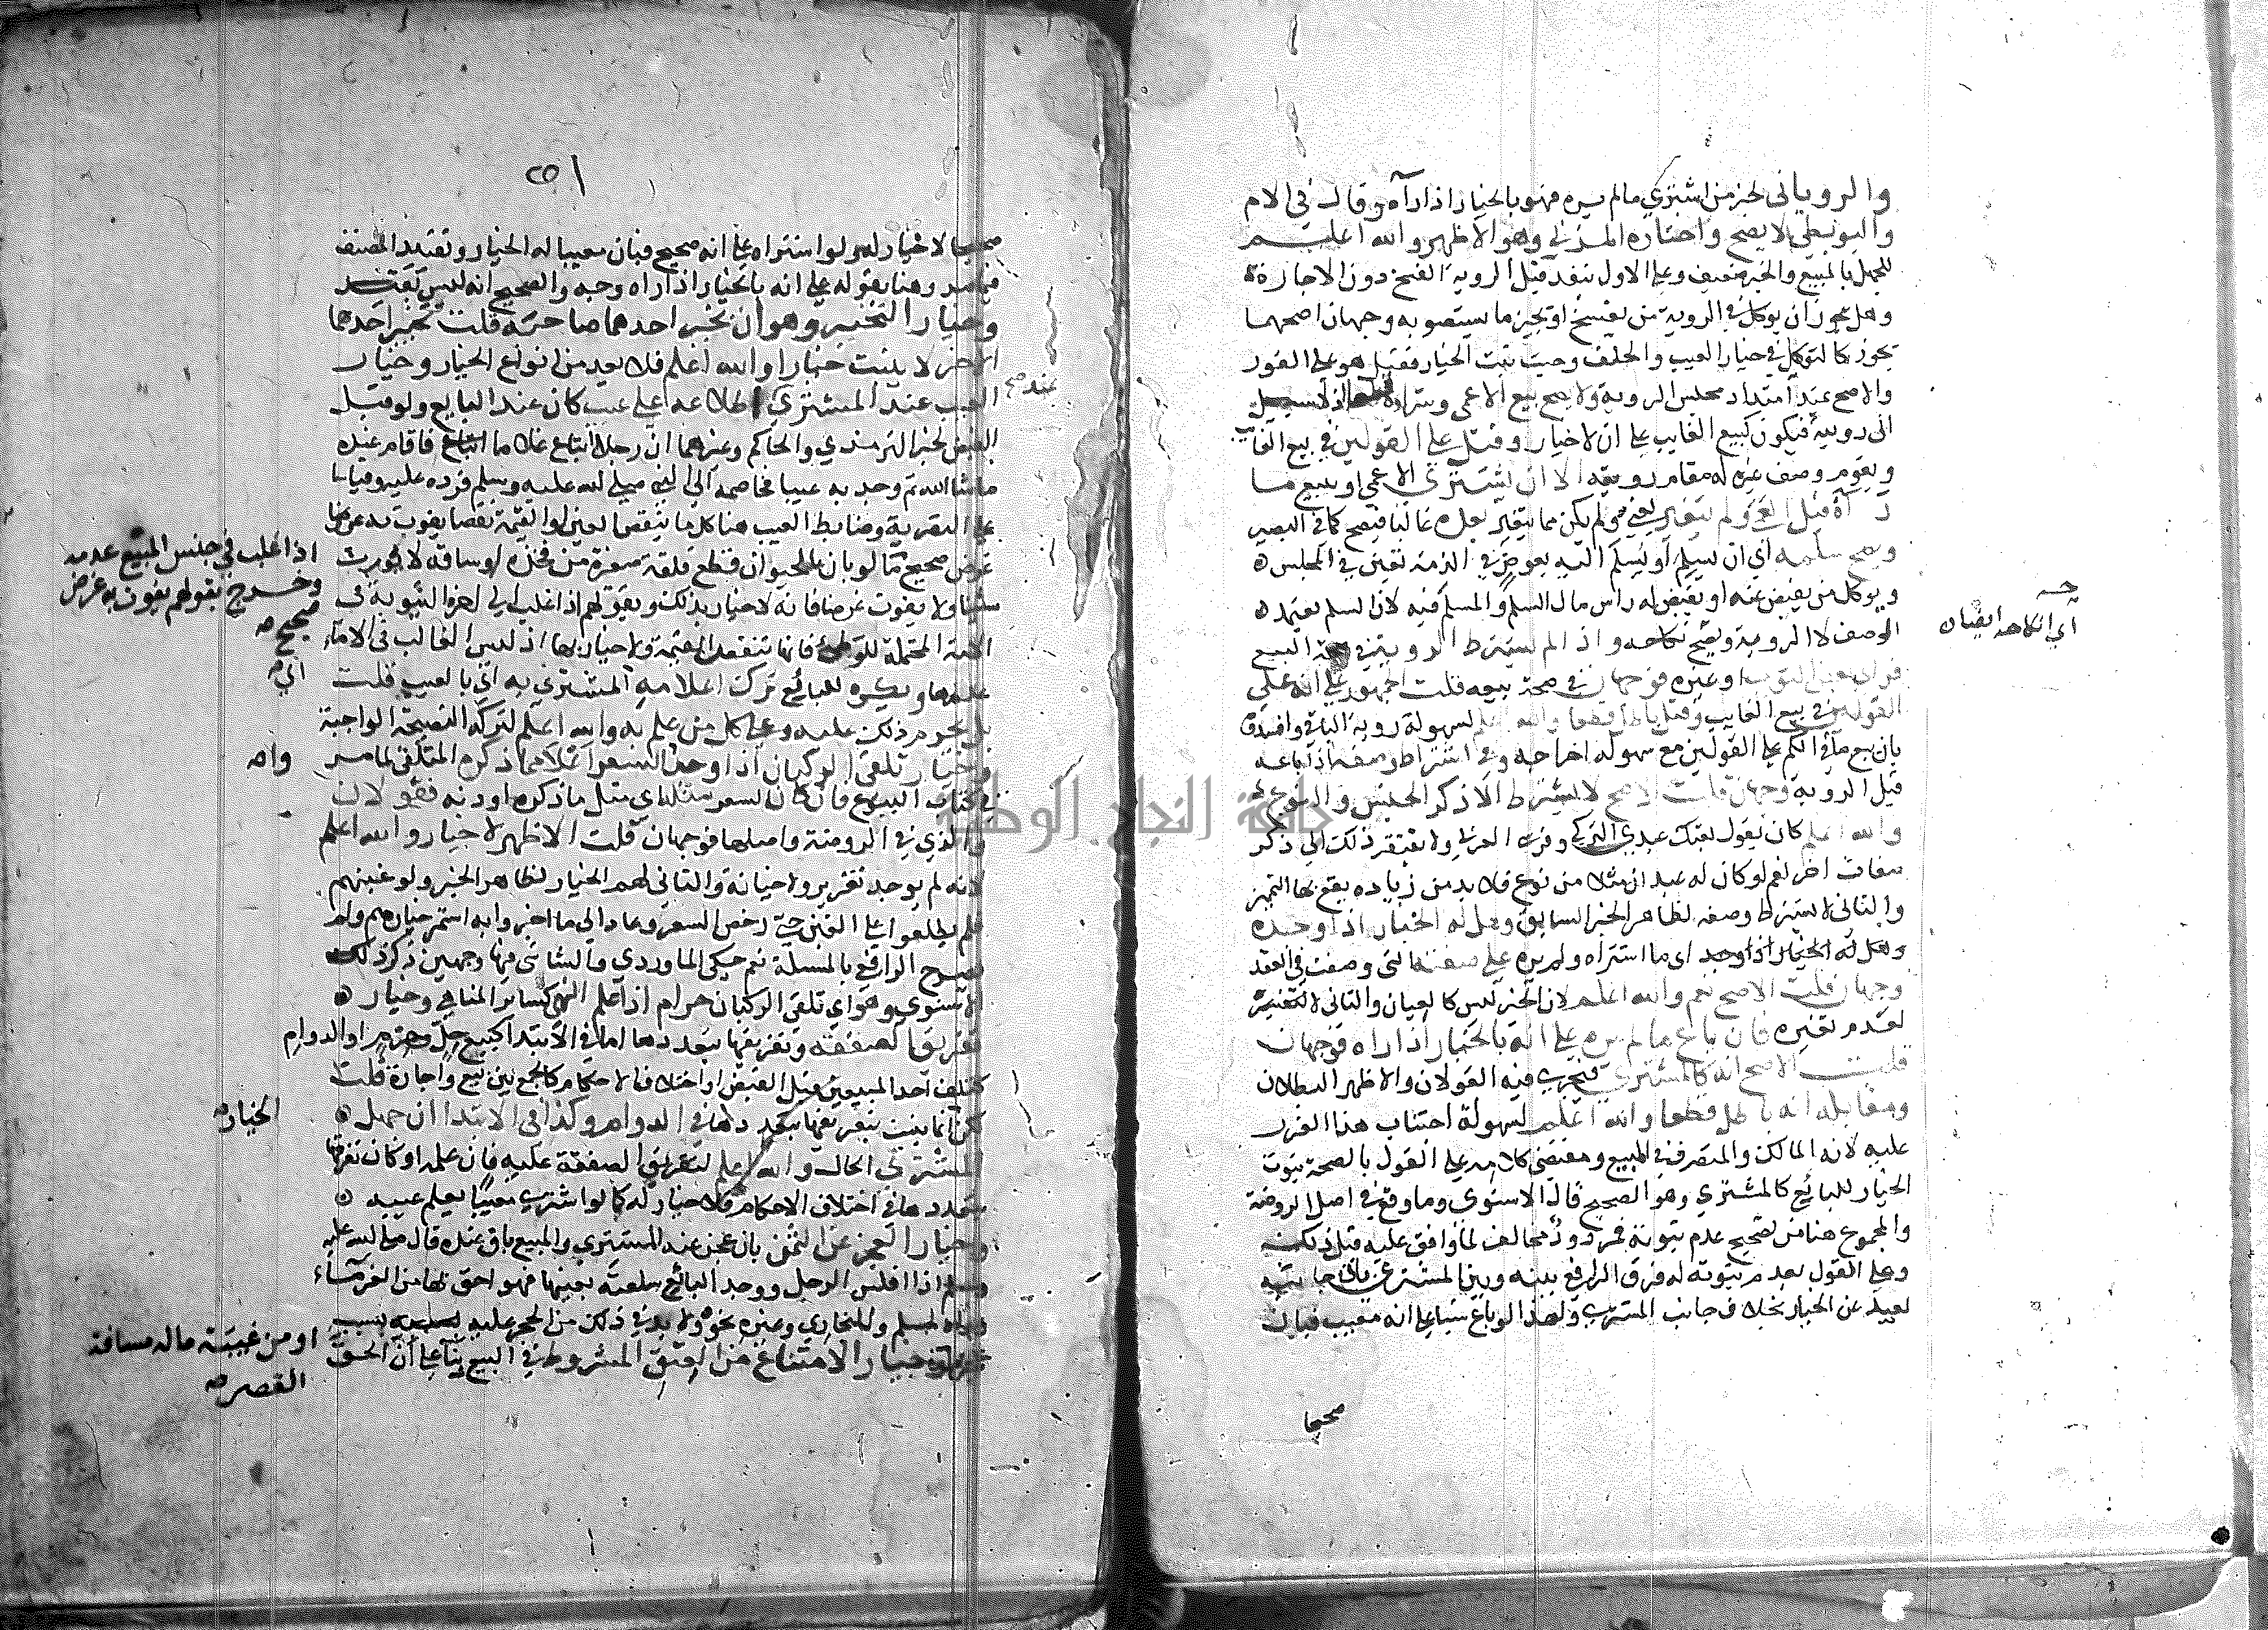 والروياني لخبر من اشتري مالم يره فهو بالخيار اذا رآه وقال في الام
والبويطي لا يصح واختاره المزني وهو الاظهر والله اعلم
للجهل بالمبيع والخبر ضعيف وعلى الاول ينفد قبل الروية الفسخ دون الاجازة
وهل يجوز ان يوكل في الروية من يفسخ او يجيز ما يستصوبه وجهان اصحهما
يجوز كالتوكل في خيار العيب والخلف وحيث ثبت الخيار فقيل هو على الفور
والاصح عند امتداد مجلس الروية ولا يصح بيع الاعمى وشراوه اذ لا سبيل
الى رويته فيكون كبيع الغايب على ان لا خيار وقيل على القولين في بيع الغايب
ويقوم وصف غيره له مقام رويته الا ان يشتري الاعمى او يبيع ما
رآه قبل العمى ولم يتغير يعني ولم يكن مما يتغير بعده غالبا فيصح كما في البصير
ويصح سلمه اي ان يسلم او يسلم اليه بعوض في الذمة تعين في المجلس
ويوكل من يقبض عنه او يقبض له راس مال السلم والمسلم فيه لان السلم يعتمد
الوصف لا الروية ويصح نكاحه واذا لم يشترط الروية في صحة البيع
حـــه
اي انكاحه ايضا
فراى بعض الثوب او غيره فوجهان في صحة بيعه قلت الجمهور على انه على
القولين في بيع الغايب وقيل باطل قطعا والله اعلم لسهولة روية الباقي وافسدوه
بان بيع ما في الكم على القولين مع سهولة اخراجه وفي اشتراط وصفه اذا باعه
قبل الروية وجهان قلت الاصح لا يشترط الا ذكر الجنس والنوع
والله اعلم كان يقول بعتك عبدي التركي وفرسي العربي ولا يفتقر ذلك الى ذكر
صفات اخر نعم لو كان له عبدان مثلا من نوع فلا بد من زياده يقع بها التميز
والثاني لا يشترط وصفه لظاهر الخبر السابق وهل له الخيار اذا وجده
وهل له الخيار اذا وجد اى ما اشتراه ولم يره على صفته التي وصفت في العقد
وجهان قلت الاصح نعم والله اعلم لان الخبر ليس كالعيان والثاني لا
لعدم تغيره فان باع ما لم يره على انه بالخيار اذا راه فوجهان
قلت الاصح انه كالمشتري فيجري فيه القولان والاظهر البطلان
ومقابله انه باطل قطعا والله اعلم لسهولة اجتناب هذا الغرر
عليه لانه المالك والمتصرف في المبيع ومقتضى كلامه على القول بالصحة ثبوت
الخيار للبائع كالمشتري وهو الصحيح قال الاسنوي وما وقع في اصل الروضة
والمجموع هنا من تصحيح عدم ثبوته فمردود مخالف لما وافق عليه قبل ذلك
وعلى القول بعدم ثبوته له فرق الرافعي بينه وبين المشتري بان جانبه
بعيد عن الخيار بخلاف جانب المشتري ولهذا لو باع شيا على انه معيب فبان
صحيحا
صحيحا لا خيار له ولو اشتراه على انه صحيح فبان معيبا له الخيار وتقييد المصنف
فيما مر وهنا بقوله على انه بالخيار اذا راه وجه والصحيح انه ليس بقيد
وخيار التخيير وهو ان يخير احدهما صاحبه قلت تخيير احدهما
الاخر لا يثبت خيارا والله اعلم فلا يعد من انواع الخيار وخيار
العيب عند المشتري اطلاعه على عيب كان عند البايع ولو قبل
عند صح
القبض لخبر الترمذي والحاكم وغيرهما ان رجلا ابتاع غلاما فاقام عنده
ما شا الله ثم وجد به عيبا فخاصمه الى النبي صلى الله عليه وسلم فرده عليه وقياسا
على التصرية وضابط العيب هنا كل ما ينقص العين او القيمة نقصا يفوت به غرض
غرض صحيح ما لو بان بالحيوان قطع فلقة صغيرة من فخذه او ساقه لا يورث
اذا غلب في جنس المبيع عدمه
وخرج بقولهم يفوت به غرض
صحيح صح
شينا ولا يفوت غرضا فانه لا خيار بذلك وبقولهم اذا غلب الى اخره الثيوبة في
الامة المحتملة للوطئ فانها تنقص القيمة ولا خيار بها اذ ليس الغالب في الاماء
عدمها ويكره للبائع ترك اعلامه المشتري به اي بالعيب قلت
اي صح
بل يحرم ذلك عليه وعلى كل من علم به والله اعلم لتركه النصيحة الواجبة
وخيار تلقي الركبان اذا وجدوا السعر اغلا مما ذكره المتلقي لما مر
واه
في كتاب البيوع فان كان السعر مثله اي مثل ما ذكره او دونه فقولان
والذي في الروضة واصلها فوجهان قلت الاظهر لا خيار والله اعلم
لانه لم يوجد تغرير ولا خيانة والثاني لهم الخيار لظاهر الخبر ولو غبنهم
فلم يطلعوا على الغبن حتى رخص السعر وعاد الى ما اخبروا به استمر خيارهم ولم
يصرح الرافعي بالمسئلة نعم حكى الماوردي والشاشي فيها وجهين ذكر ذلك
الاسنوي وهو اي تلقي الركبان حرام اذا علم النهي كسائر المناهي وخيار
تفريق الصفقة وتفريقها بتعددها اما في الابتدا كبيع حل وحرم او الدوام
كتلف احد المبيعين قبل القبض او اختلاف الاحكام كالجمع بين بيع واجارة قلت
لكن انما يثبت بتفريقها بتعددها في الدوام وكذا في الابتدا ان جهل
الخيار صح
المشتري الحال والله اعلم لتفريق الصفقة عليه فان علمه او كان تفريقها
بتعددها في اختلاف الاحكام فلا خيار له كما لو اشترى معيبا يعلم عيبه
وخيار العجز عن الثمن بان عجز عنه المشتري والمبيع باق عنده قال صلى الله عليه
وسلم اذا افلس الرجل ووجد البائع سلعته بعينها فهو احق بها من الغرماء
رواه مسلم وللبخاري وغيره نحوه ولا بد في ذلك من الحجر عليه
او من غيبة ماله مسافة
القصر صح
وخيار الامتناع من العتق المشروط في البيع بناء على ان الحق